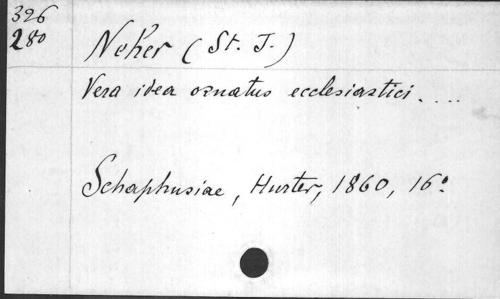 326
280
Neher (St. J.)
Vera idea ornatus ecclesiastici. ...
Schaphusiae, Hurter, 1860, 16º